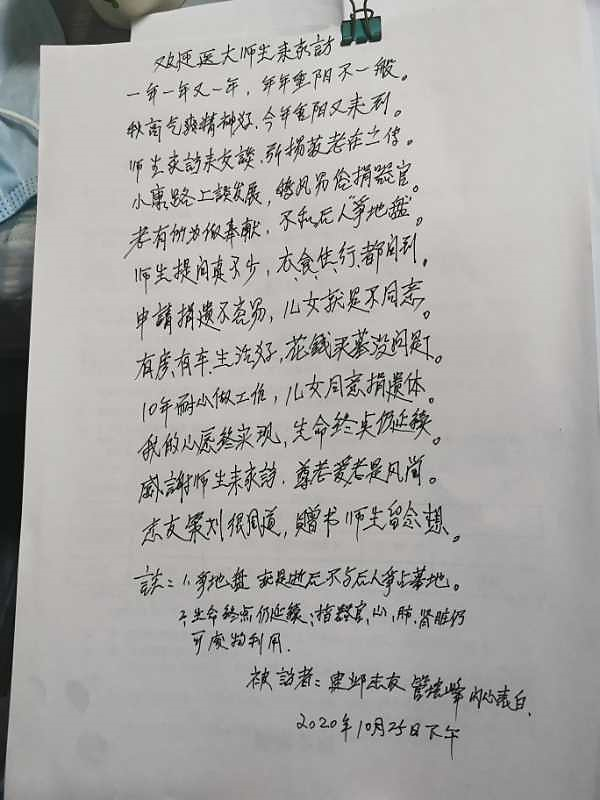 欢迎医大师生来家訪
一年一年又一年，年年重阳不一般。
秋高气爽精神好，今年重阳又来到。
师生家訪来交談，弘揚敬老在上传。
小康路上談发展，移风易俗捐器官。
老有所为做奉献，不和后人“争地盘”。
师生提问真不少，衣、食、住、行、都问到。
申請捐遗不容易，儿女就是不同意。
有房有车生活好，花錢买墓没问题。
10年耐心做工作，儿女同意捐遗体。
我的心愿终实现，生命终点仍延續。
感謝师生来家訪，尊老爱老是风尚。
志友策划很周道，赠书师生留念想。
註：1，争地盘 就是逝后不与后人争占墓地。
2，生命终点仍延續；指器官、心、肺、肾脏仍
可废物利用.
被訪者：志友 内心表白.
2020年10月25日下午